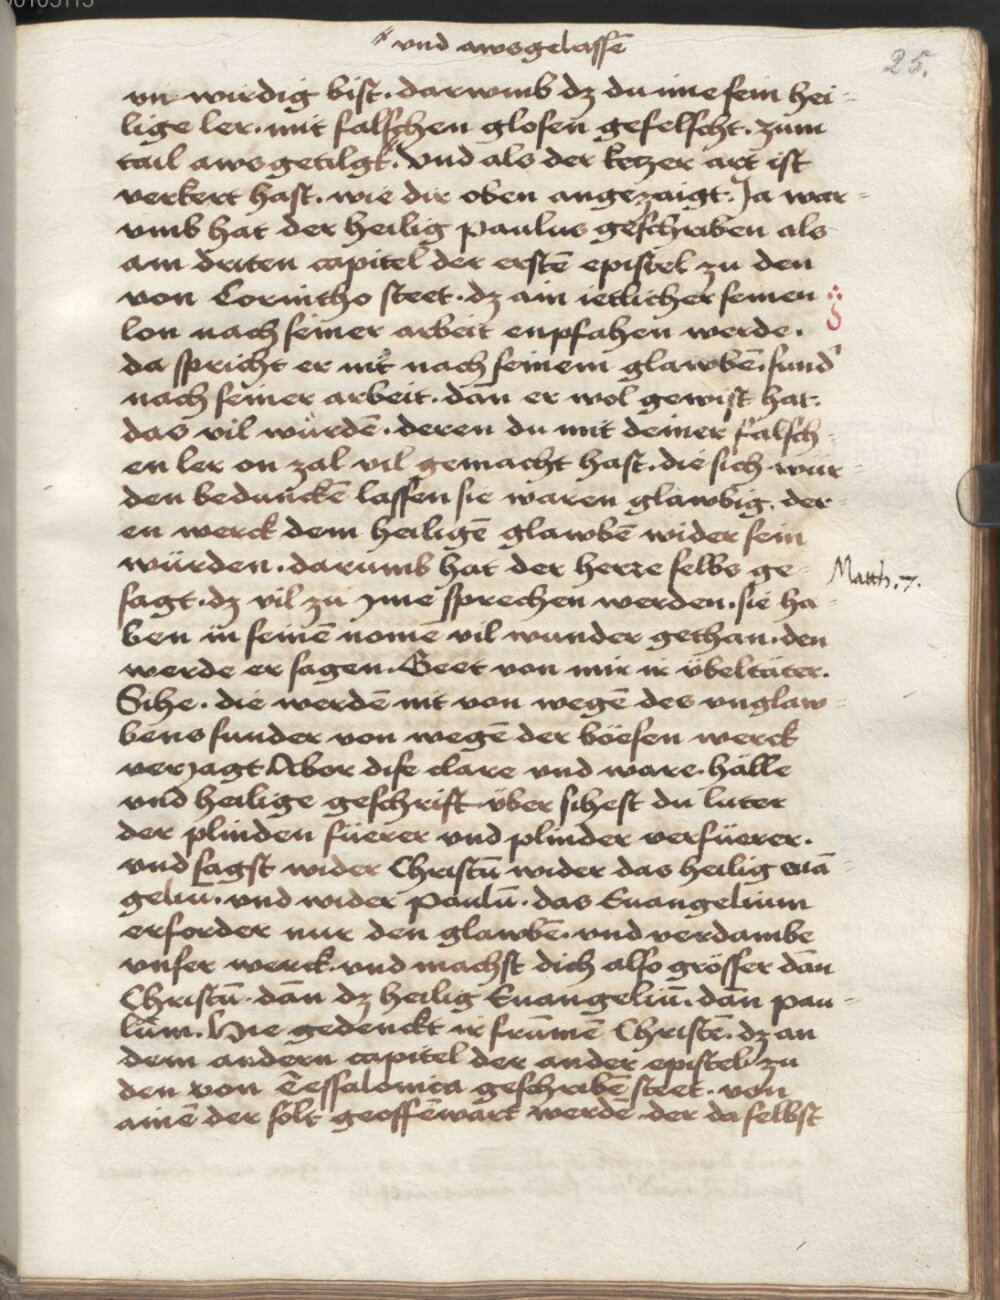 00105115
〃 vnd awsgelassē
25.
vn wirdig bist. darwmb dz du ime sein hei-
lige ler. mit falschen glosen gefelscht. zum
tail aws getilgt〃. Vnd als der ketzer art ist
verkert hast. wie dir oben angezaigt. Ja war-
vmb hat der heilig paulus geschriben als
am driten capitel der erstē epistel zu den
von Corintho steet. dz ain ietlicher seinen
lon nach seiner arbeit enpfahen werde.
da spricht er nit nach seinem glawbē. sund'
nach seiner arbeit. dan er wol gewist hat.
das vil würdē. deren du mit deiner falsch-
en ler on zal vil gemacht hast. die sich wur-
den beduncke lassen sie waren glawbig. der-
en werck dem heiligē glawbē wider sein
würden. darumb hat der herre selbs ge-
Matth. 7.
sagt. dz vil zu jme sprechen werden. sie ha-
ben in seinē nomē vil wunder gethan. den
werde er sagen. Geet von mir ir übeltäter.
Sihe. die werdē nit von wegē des vnglaw-
bens sunder von wegē der böesen werck
verjagt. Aber dise clare vnd ware. hälle
vnd heilige geschrift über sihest du luter
der plinden füerer vnd plinder verfüerer.
vnd sagst wider Christū wider das heilig euā-
geliū. vnd wider paulū. das Euangelium
erforder nur den glawbē. vnd verdambe
vnser werck. vnd machst dich also grösser dān
Christū. dān dz heilig Euangeliū. dān pau-
lum. Hie gedenckt ir frūmē Christē. dz an
dem andern capitel der ander epistel zu
den von Tessalonica geschribē steet. von
ainē der solt geoffēwart werdē. der da selbst